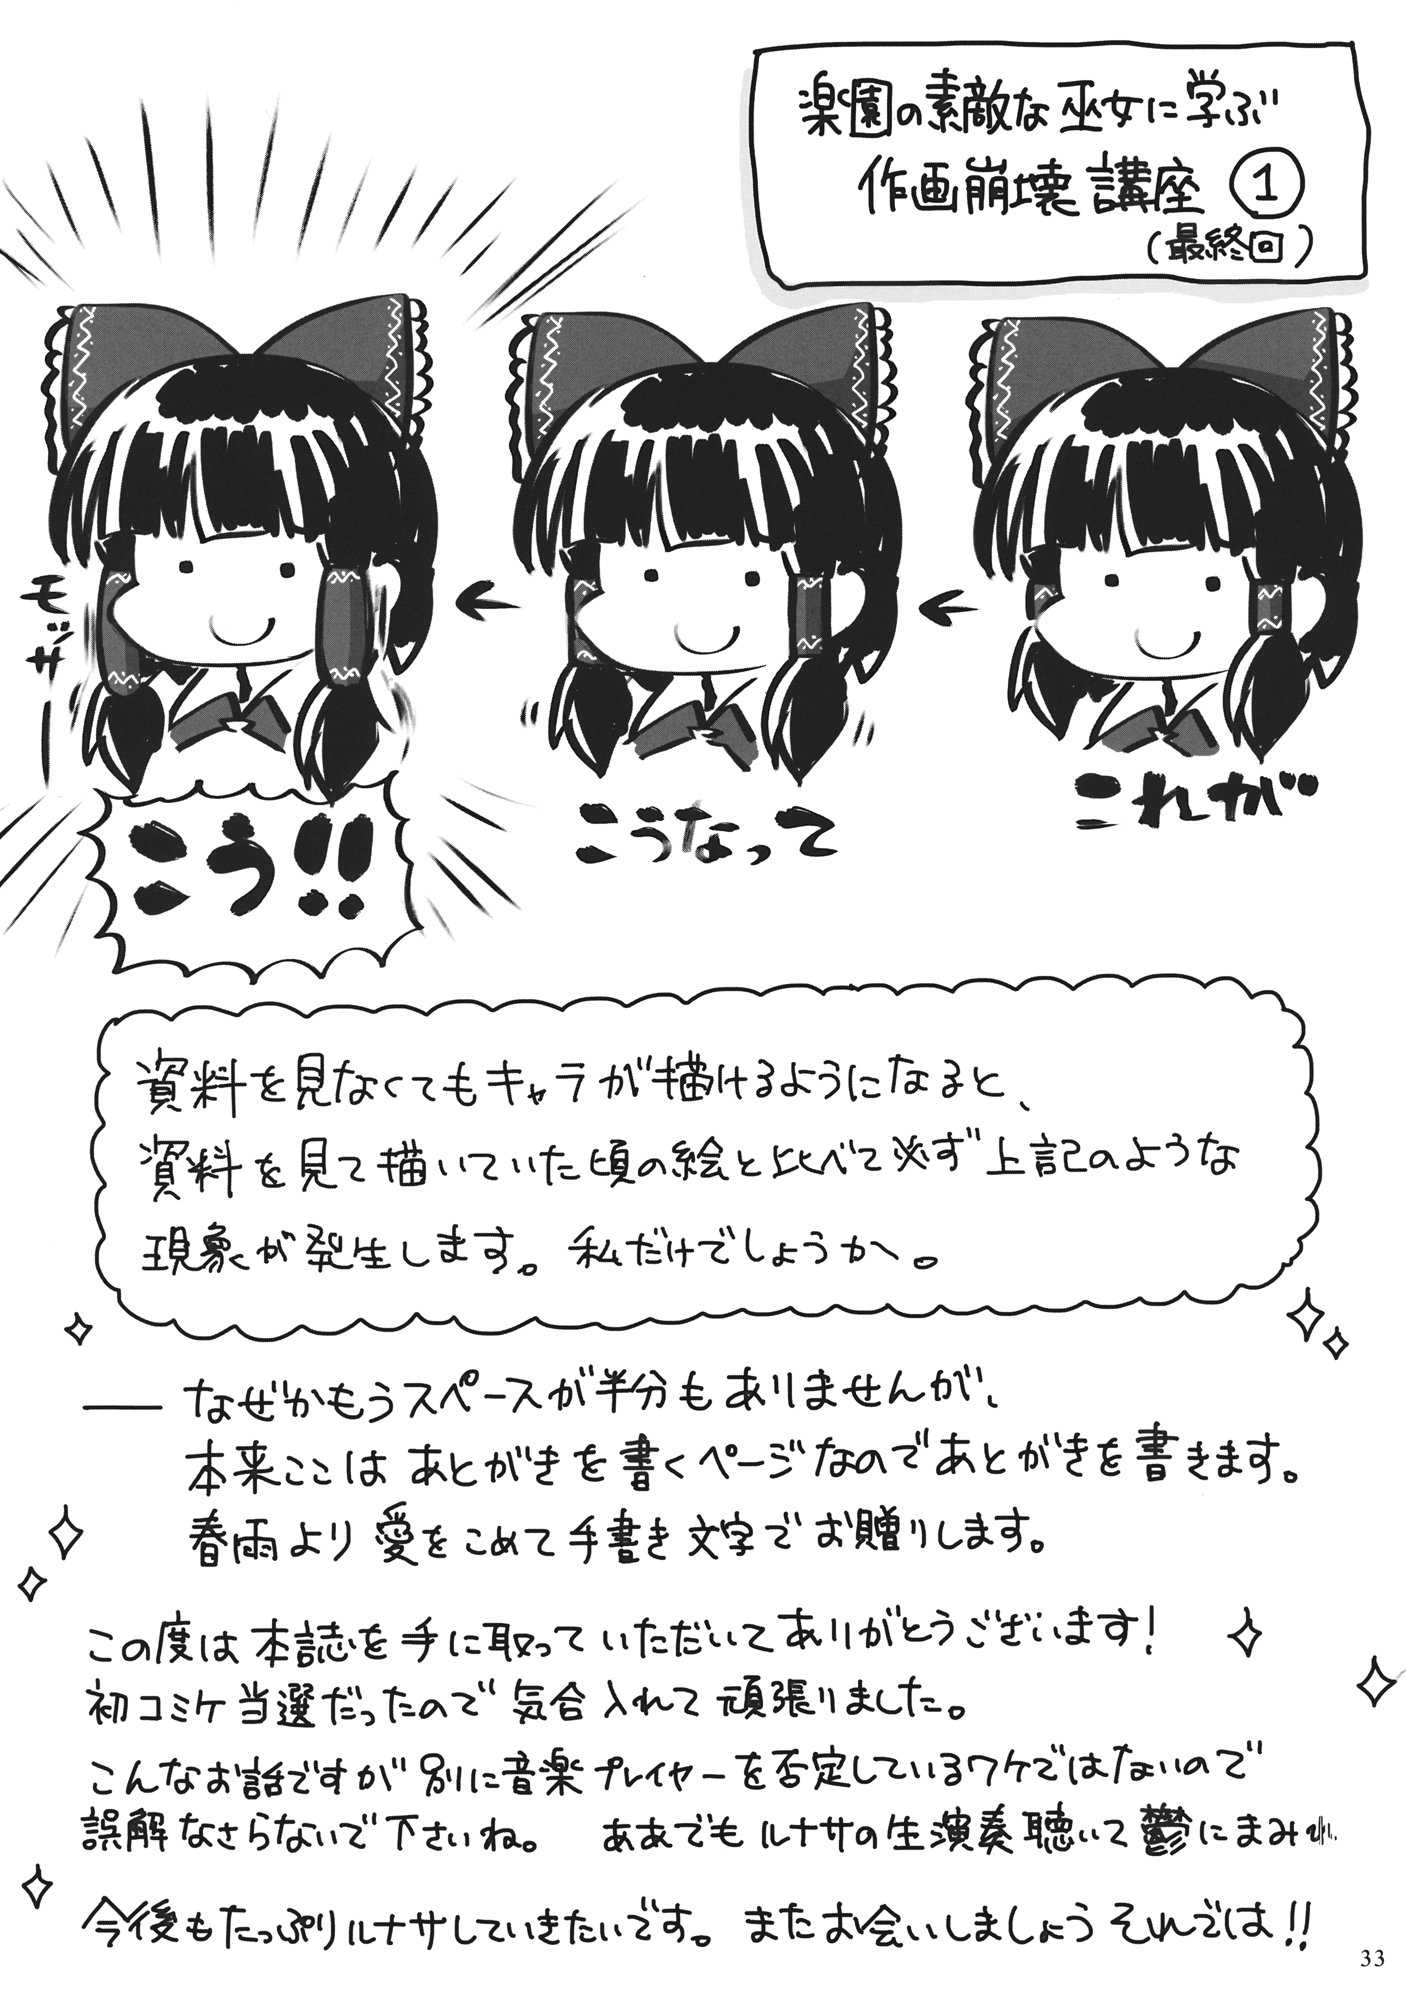 楽園の素敵な巫女に学ぶ
作画崩壊講座 ①
(最終回)
これが
こうなって
こう!!
モッサー
資料を見なくてもキャラが描けるようになると、
資料を見て描いていた頃の絵と比べて必ず上記のような
現象が発生します。私だけでしょうか。
── なぜかもうスペースが半分もありませんが、
本来ここはあとがきを書くページなのであとがきを書きます。
春雨より愛をこめて手書き文字でお贈りします。
この度は本誌を手に取っていただいてありがとうございます!
初コミケ当選だったので気合入れて頑張りました。
こんなお話ですが別に音楽プレイヤーを否定しているワケではないので
誤解なさらないで下さいね。 ああでもルナサの生演奏聴いて鬱にまみれ…
今後もたっぷりルナサしていきたいです。またお会いしましょうそれでは!!
33